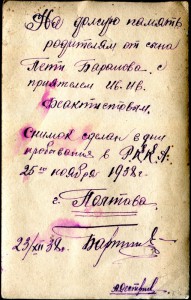 На долгую память
родителям от сына
Пети Баранова с
приятелем Ив. Ив.
Феактистовым.
Снимок сделан в дни
пребывания в Р.К.К.А.
25го ноября 1938г.
г. Полтава
23/XII 38г.